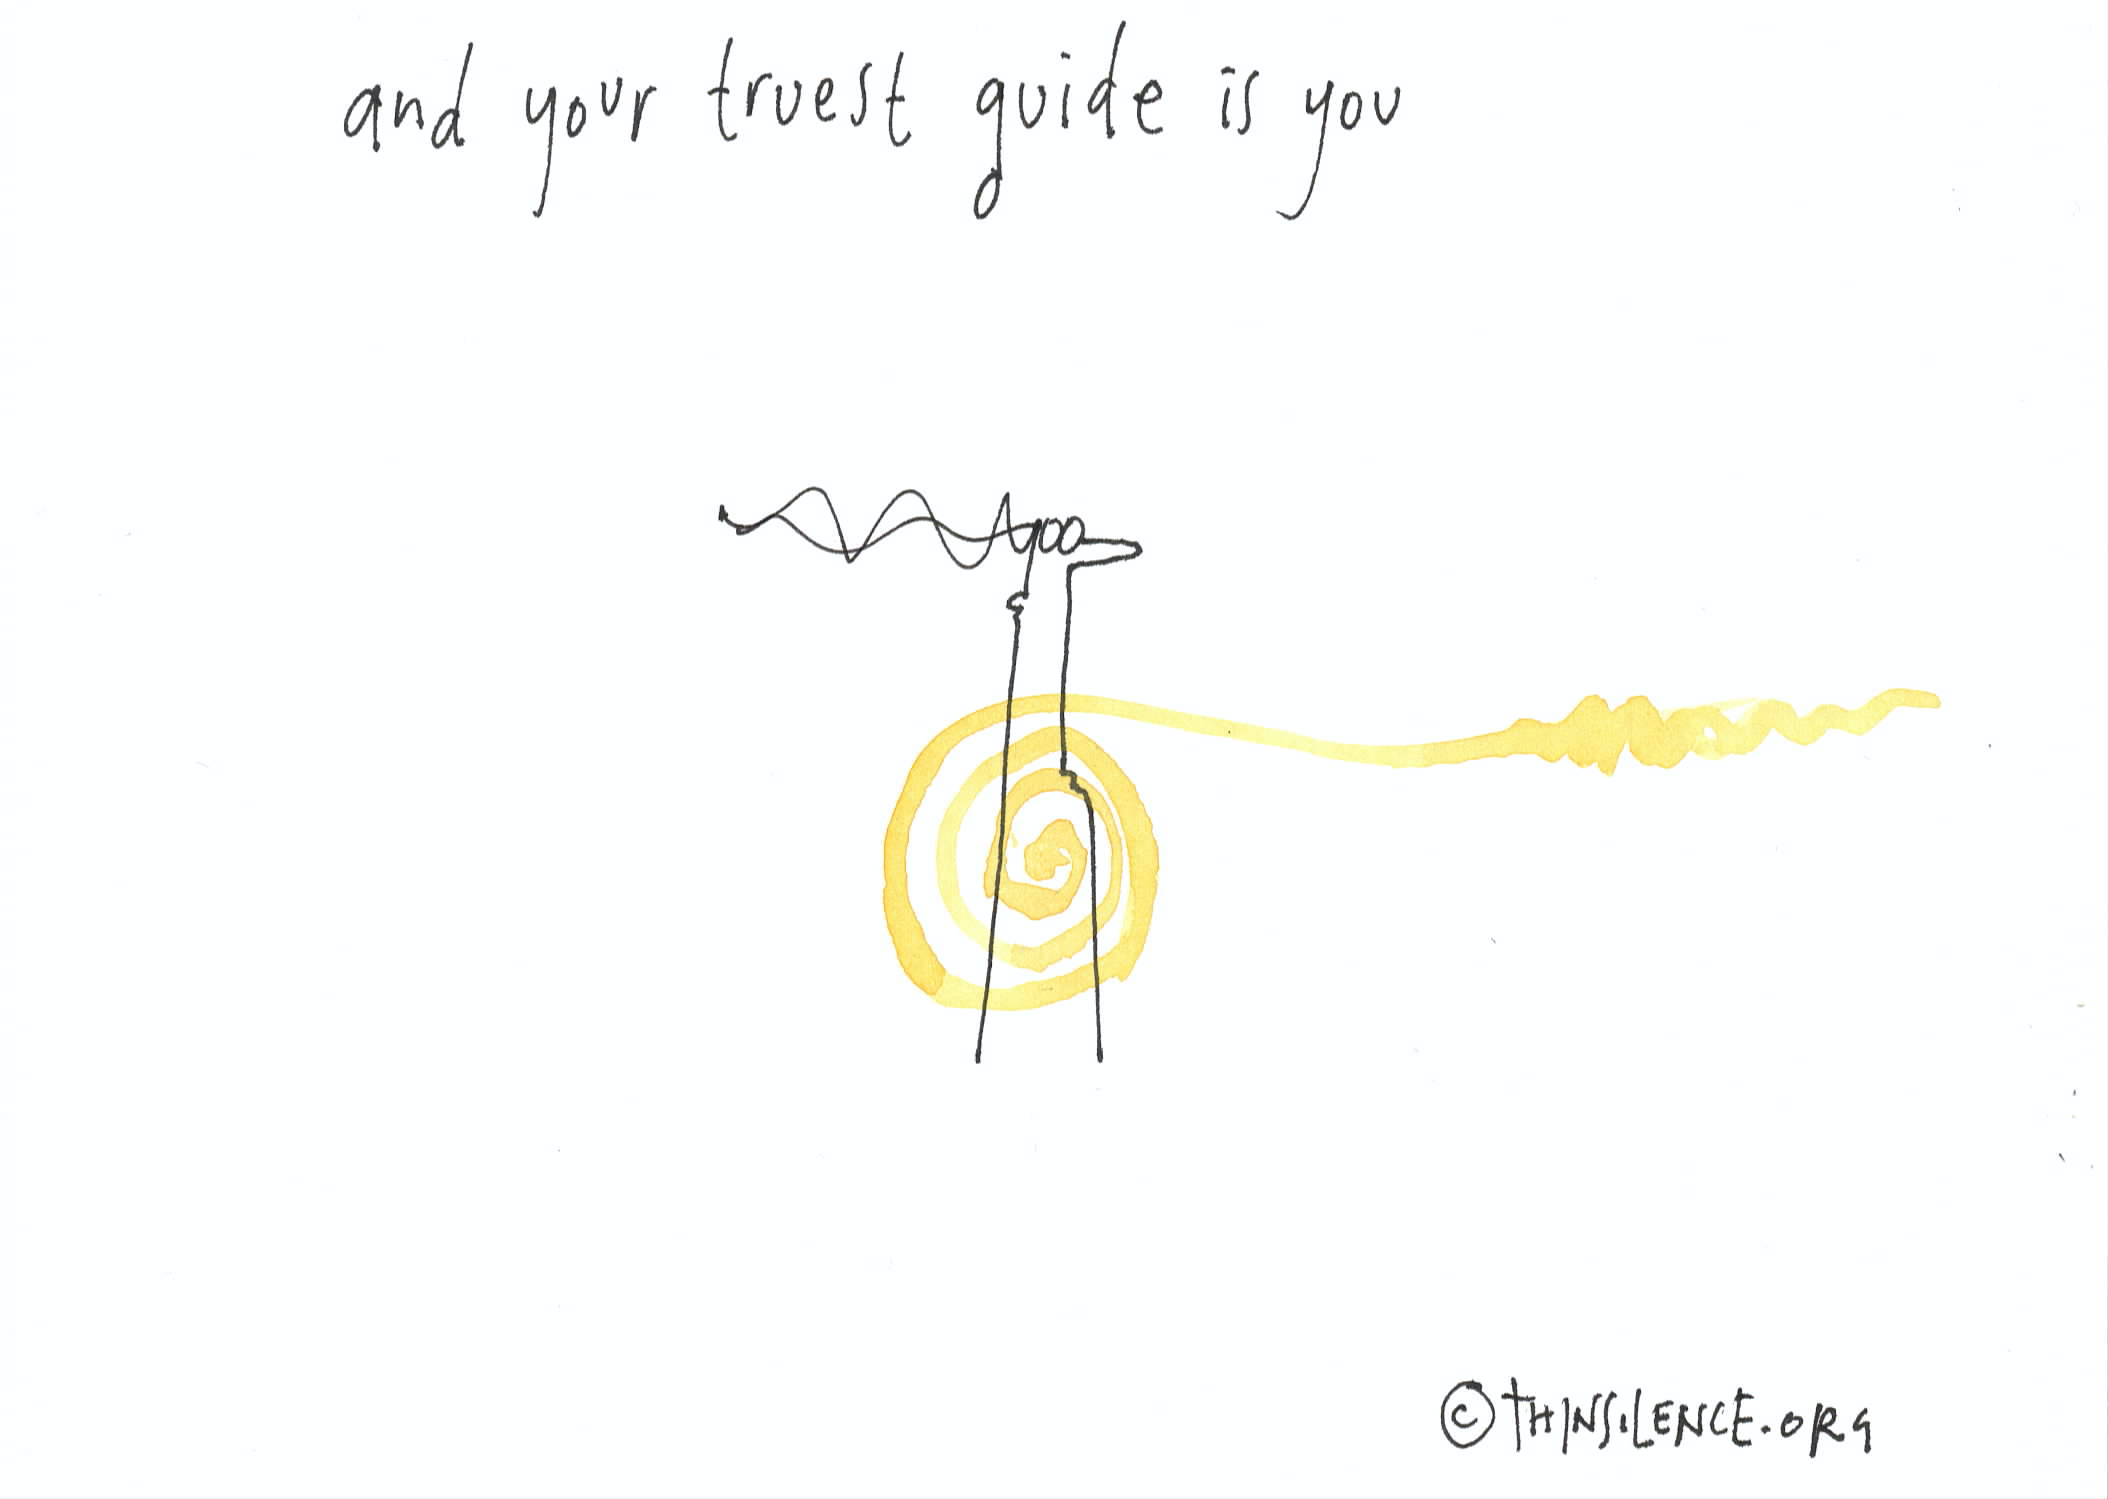 and your truest guide is you
© THINSILENCE.ORG